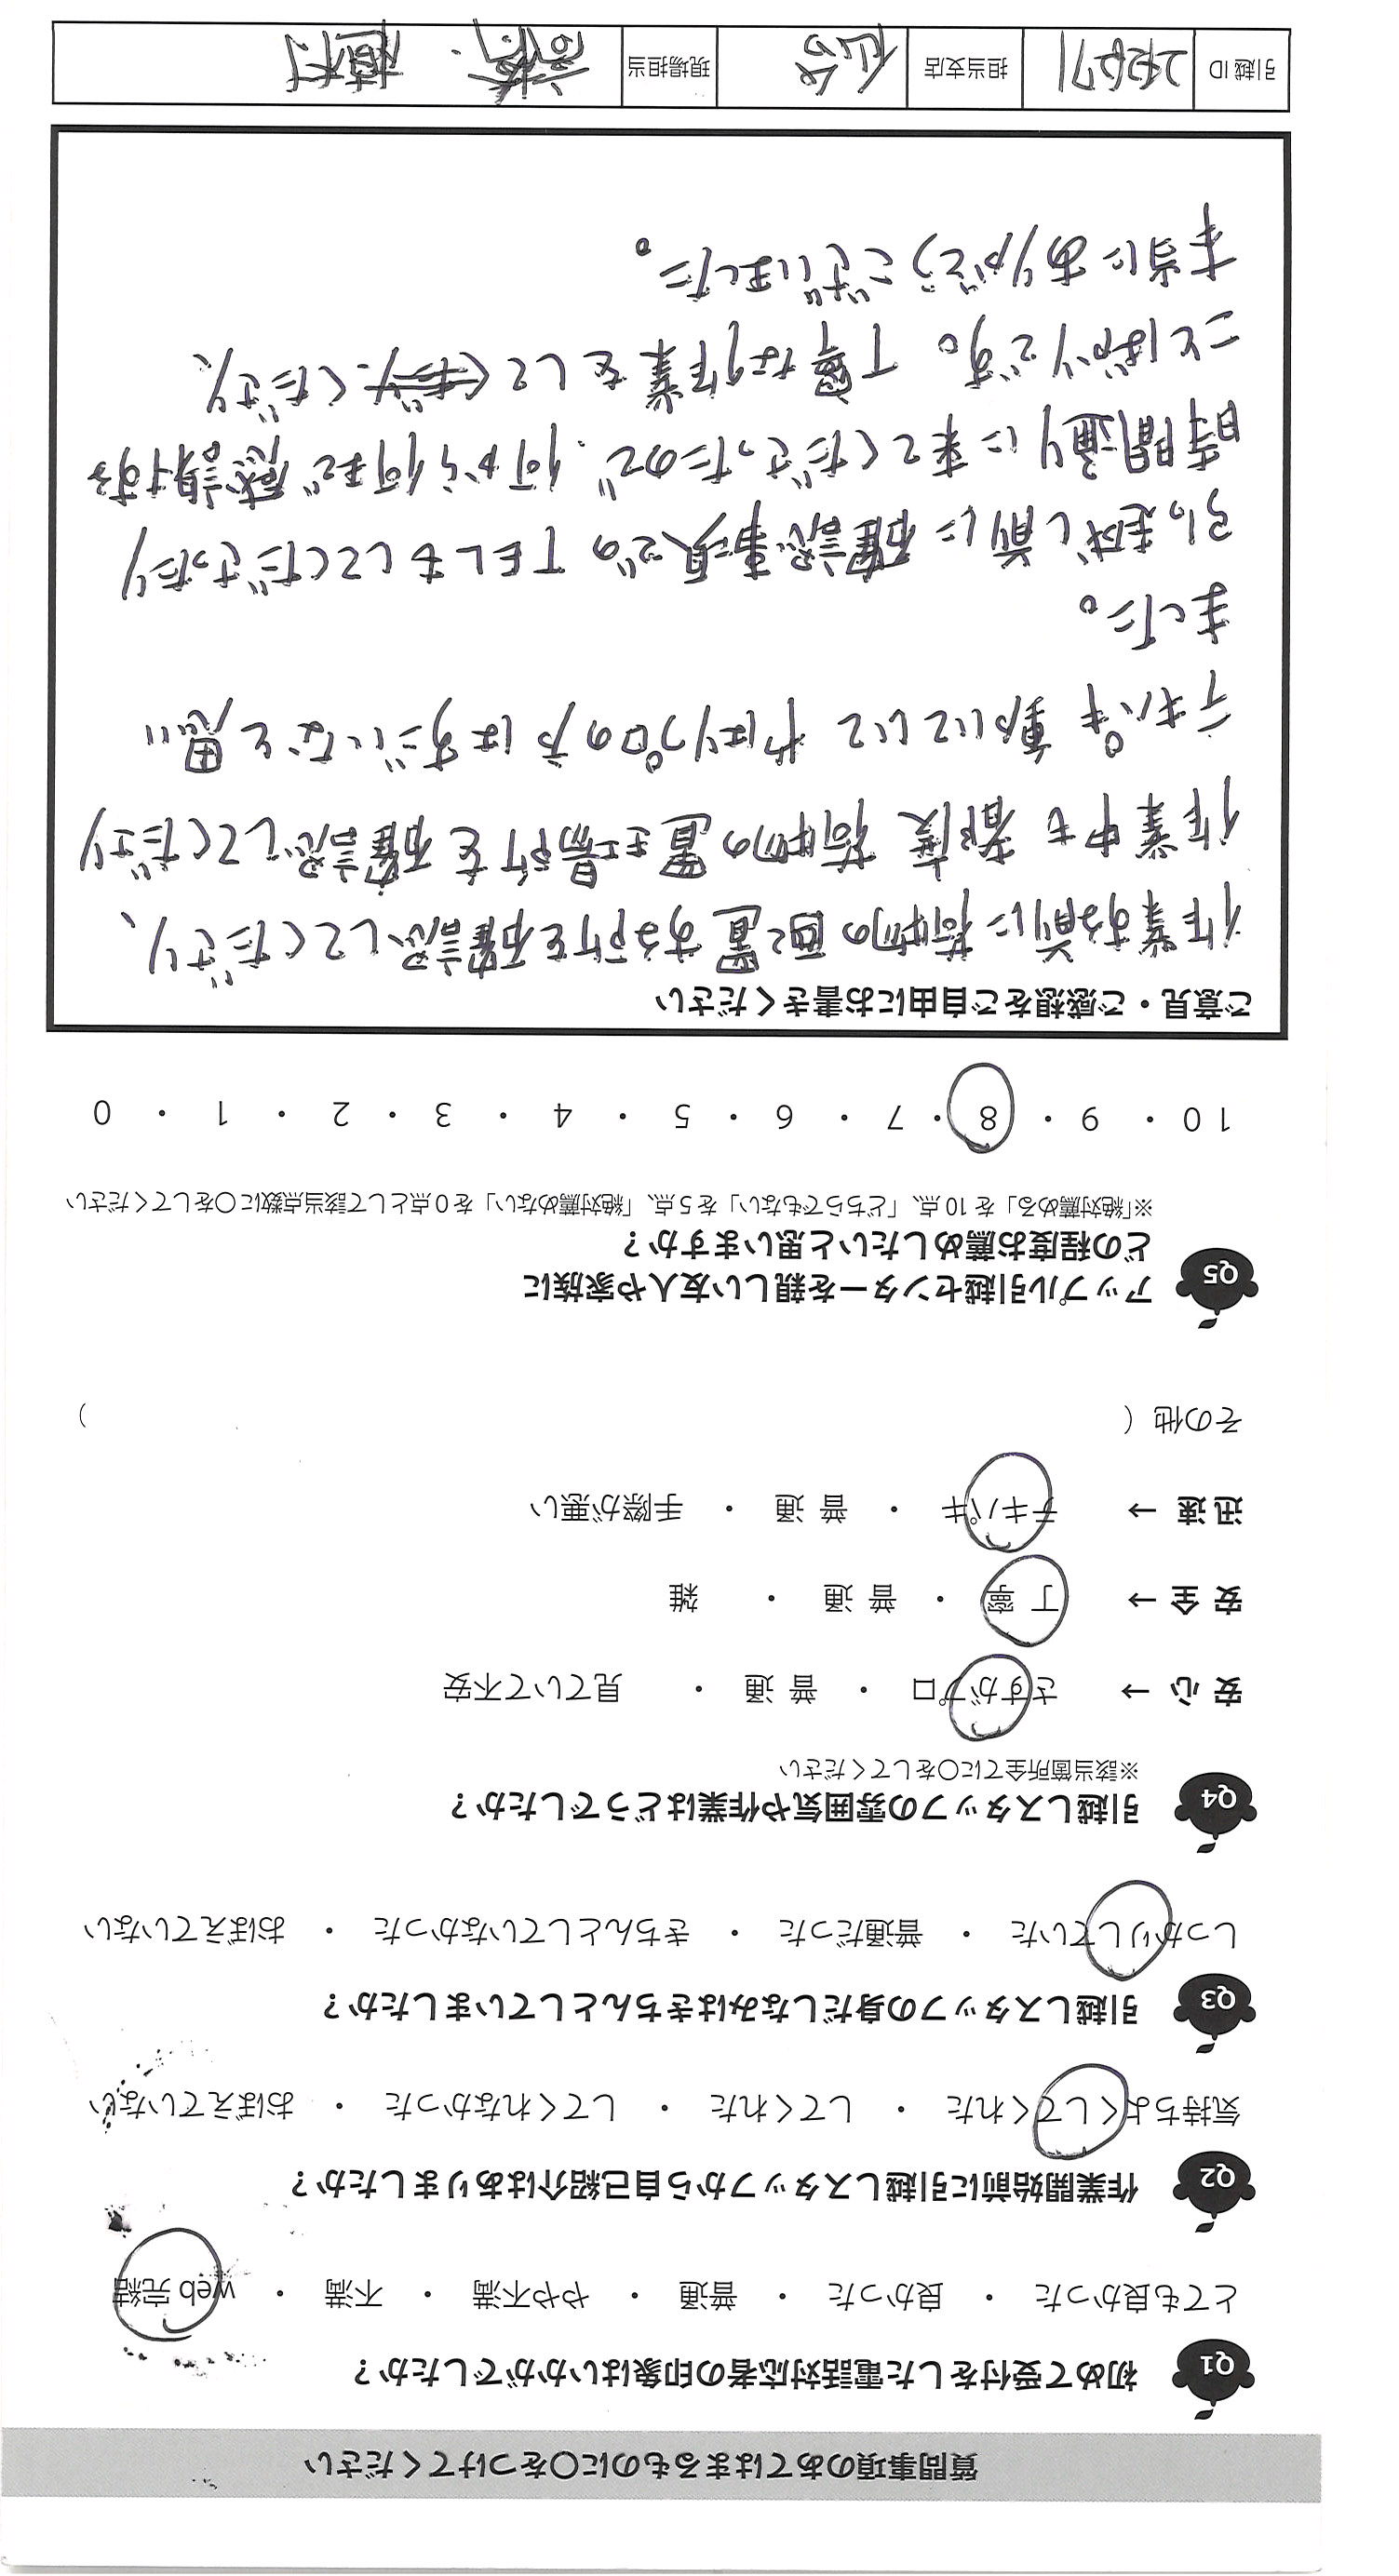 質問事項のあてはまるものに〇をつけてください
Q1 初めて受付をした電話対応者の印象はいかがでしたか？
とても良かった ・ 良かった ・ 普通 ・ やや不満 ・ 不満 ・ web 完結
Q2 作業開始前に引越しスタッフから自己紹介はありましたか？
気持ちよくしてくれた ・ してくれた ・ してくれなかった ・ おぼえていない
Q3 引越しスタッフの身だしなみはきちんとしていましたか？
しっかりしていた ・ 普通だった ・ きちんとしていなかった ・ おぼえていない
Q4 引越しスタッフの雰囲気や作業はどうでしたか？
※該当箇所全てに〇をしてください
安 心 → さすがプロ ・ 普 通 ・ 見ていて不安
安 全 → 丁 寧 ・ 普 通 ・ 雑
迅 速 → テキパキ ・ 普 通 ・ 手際が悪い
その他（ ）
Q5 アップル引越センターを親しい友人や家族に
どの程度お薦めしたいと思いますか？
※「絶対薦める」を 10 点、「どちらでもない」を 5 点、「絶対薦めない」を 0 点として該当点数に〇をしてください
10 ・ 9 ・ 8 ・ 7 ・ 6 ・ 5 ・ 4 ・ 3 ・ 2 ・ 1 ・ 0
ご意見・ご感想をご自由にお書きください
作業する前に荷物の配置する所を確認してくださり、
作業中も都度荷物の置き場所を確認してくださり
テキパキ動いていて やはりプロの方はすごいなと思い
ました。
引っ越し前に確認事項での TEL もしてくださったり
時間通りに来てくださったので、何から何まで感謝する
ことばかりです。 丁寧な作業をしてくださり、
本当にありがとうございました。
引越 ID 担当支店 仙台 現場担当 高橋、植村